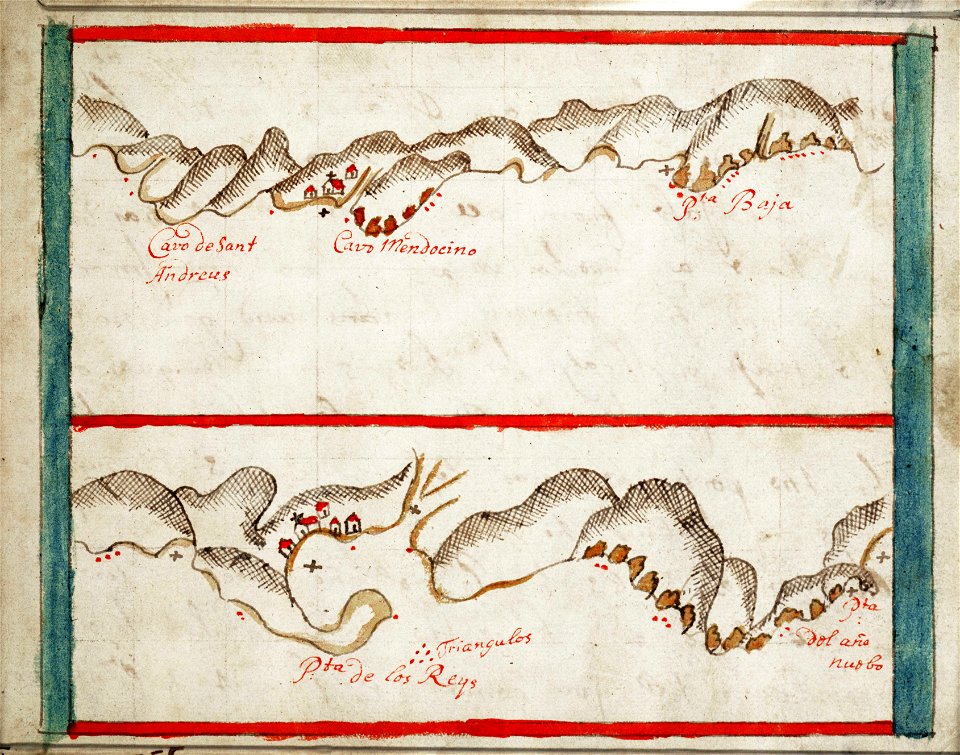 Cavo de Sant
Andreus
Cavo Mendocino
P.ta Baja
Triangulos
P.ta de los Reys
P.ta
del año
nuebo